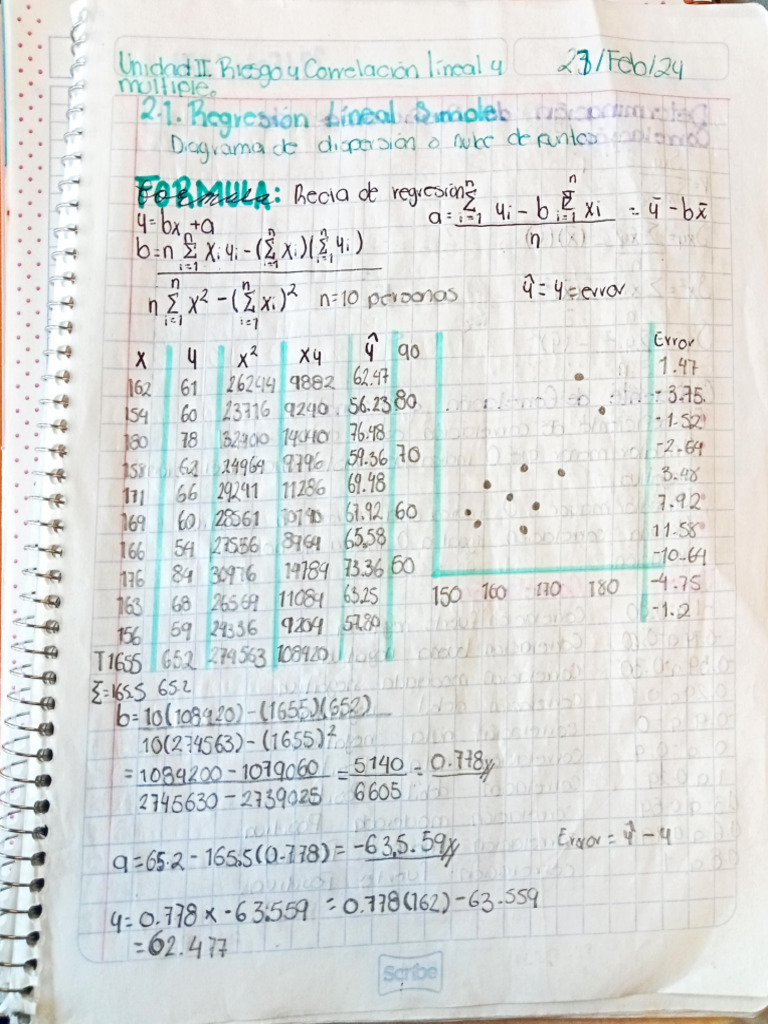 Unidad II. Riesgo y Correlación lineal y
múltiple.
23/Feb/24
2.1. Regresión Lineal Simple
Diagrama de dispersión o nube de puntos
FORMULA: Recta de regresión
y=bx+a
a= Σ(i=1, n) yi - b Σ(i=1, n) xi / (n) = ȳ - bx̄
b= n Σ(i=1, n) xi yi - (Σ(i=1, n) xi)(Σ(i=1, n) yi) / n Σ(i=1, n) x² - (Σ(i=1, n) xi)²
n=10 personas
ŷ = y = error
x y x² xy ŷ Error
162 61 26244 9882 62.47 1.47
154 60 23716 9240 56.23 -3.75
180 78 32400 14040 76.48 -1.52
158 62 24964 9796 59.36 -2.64
171 66 29241 11286 69.48 3.48
169 60 28561 10140 67.92 7.92
166 54 27556 8964 65.58 11.58
176 84 30976 14784 73.36 -10.64
163 68 26569 11084 63.25 -4.75
156 59 24336 9204 57.80 -1.2
T1655 652 274563 108920
90
80
70
60
50
150 160 170 180
Σ=165.5 65.2
b= 10(108920)-(1655)(652) / 10(274563)-(1655)²
= 1089200-1079060 / 2745630-2739025 = 5140 / 6605 = 0.778
a=65.2-165.5(0.778)= -63,5.59
Error= ŷ - y
y=0.778x-63.559 =0.778(162)-63.559
=62.477
Scribe